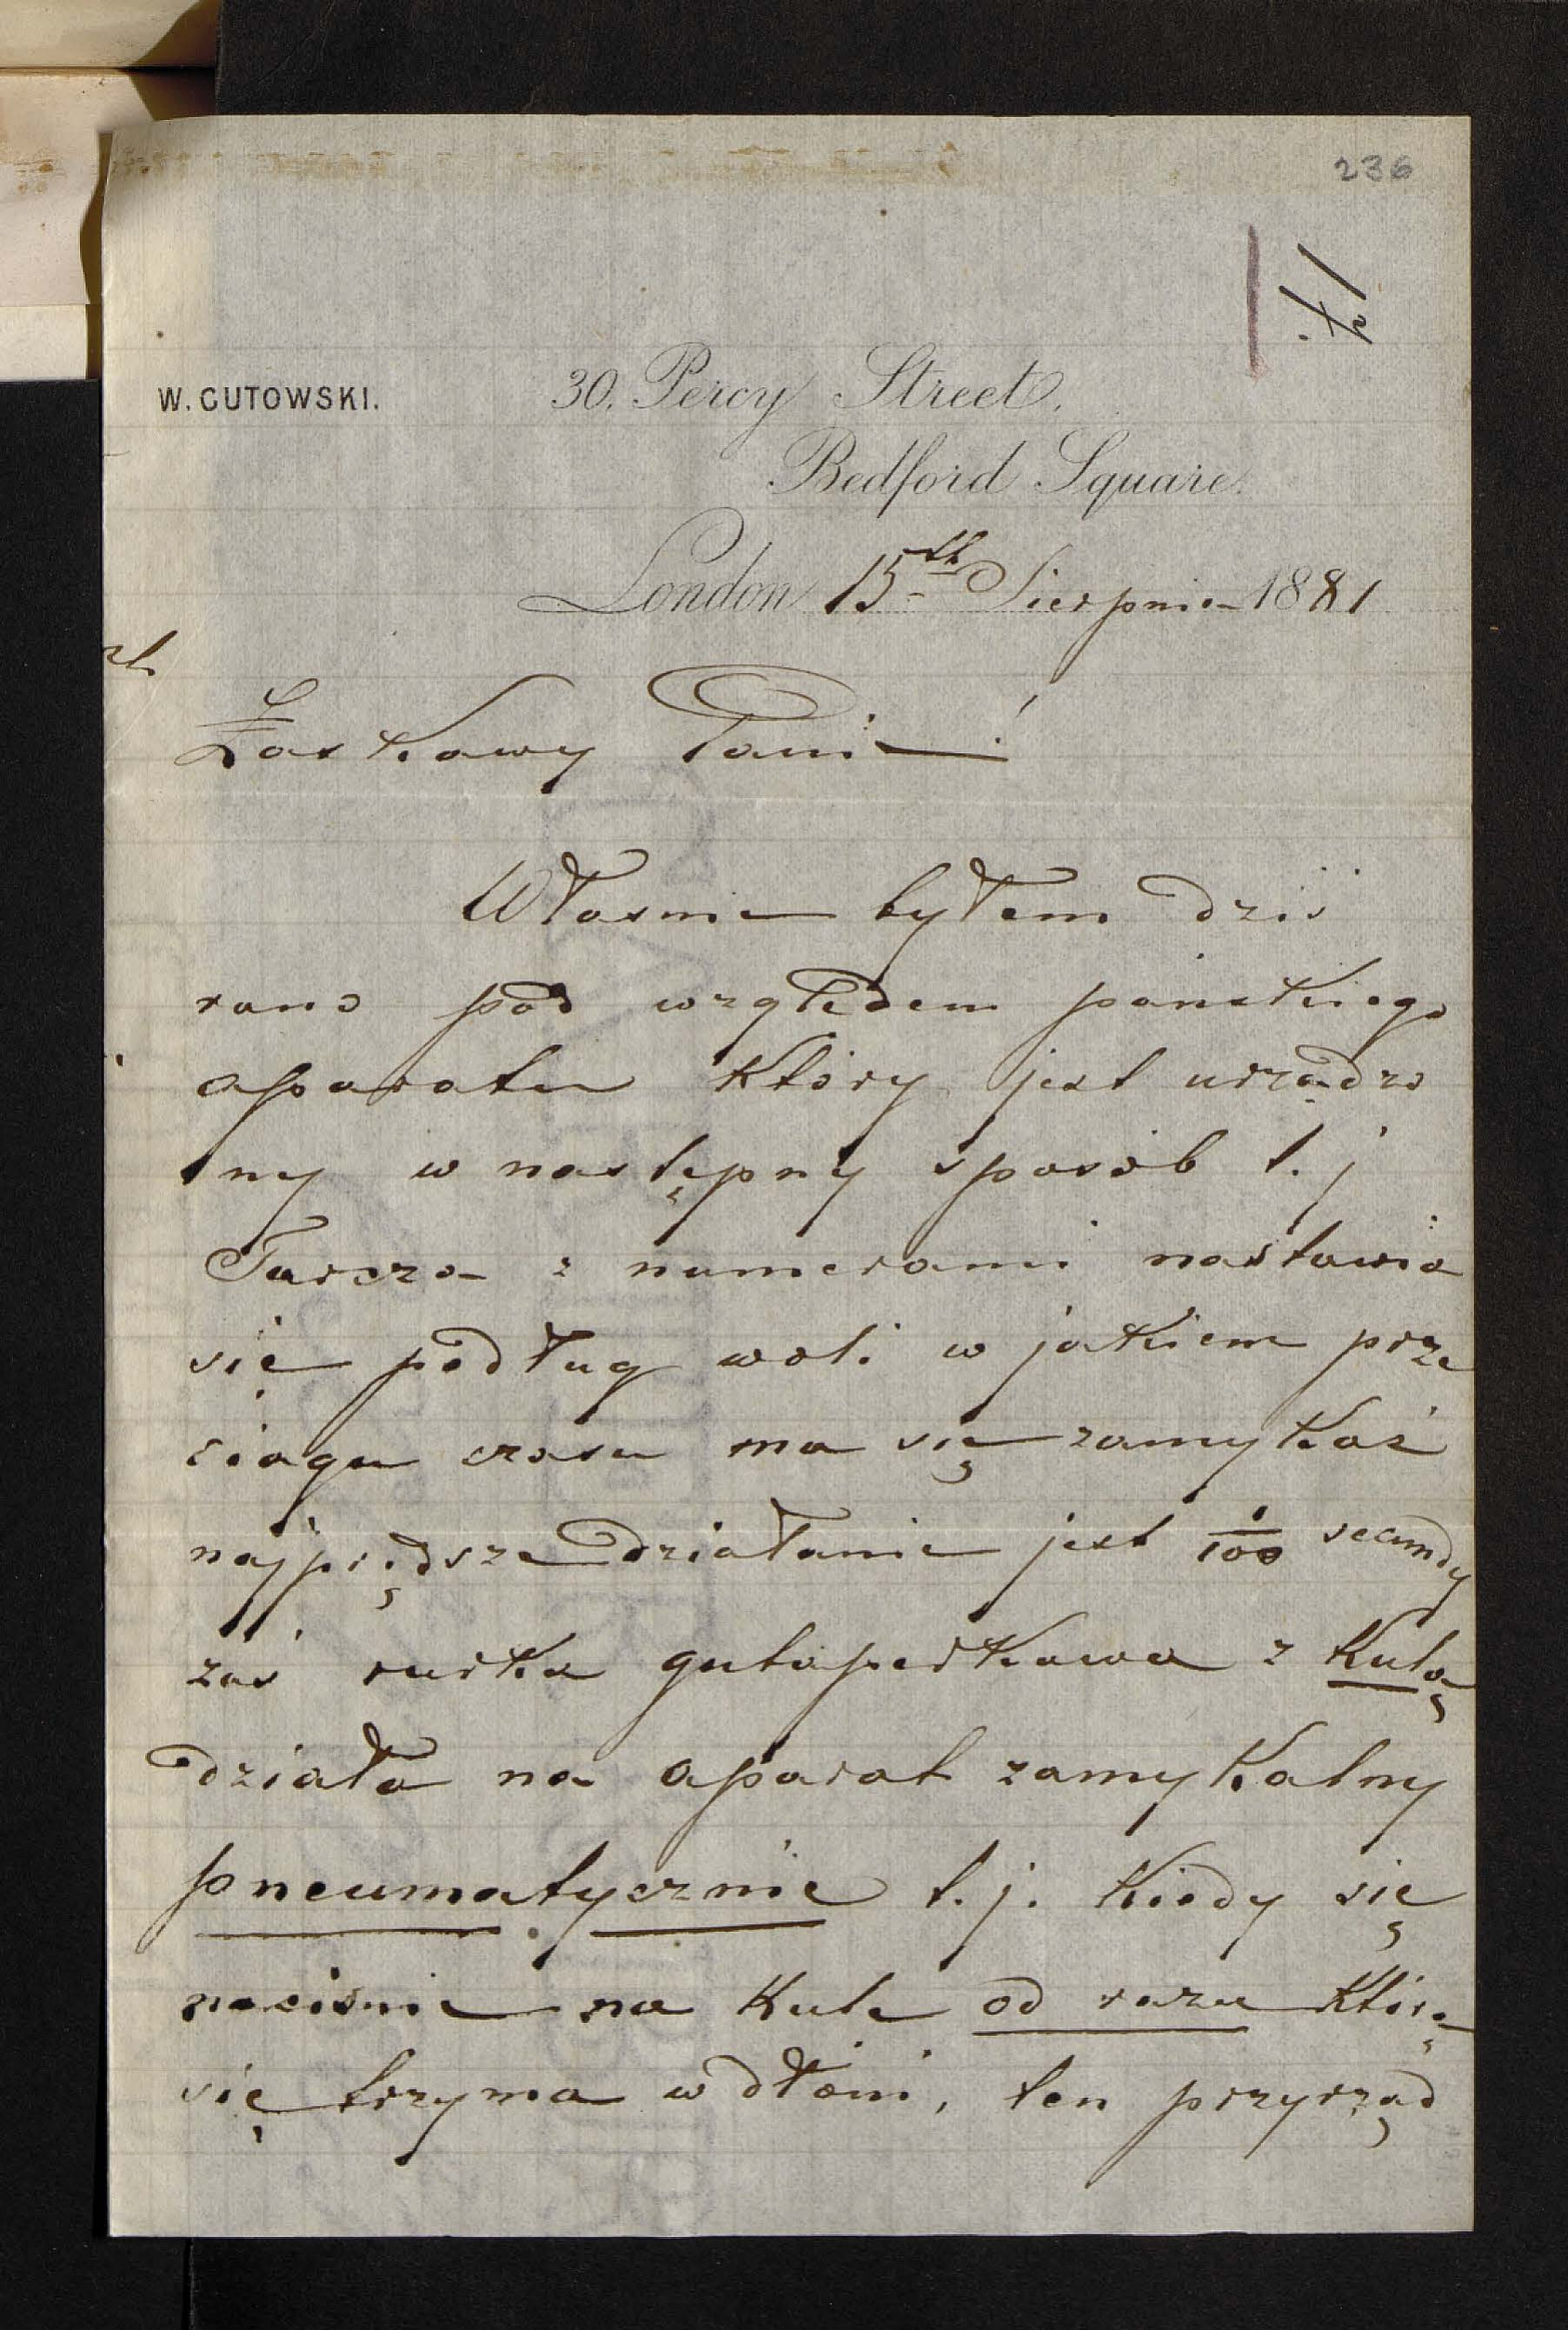 236
W. GUTOWSKI.
30. Percy Street.
Bedford Square.
London 15th Sierpnia 1881
Łaskawy Panie!
Własnie byłem dziś
rano pod względem pańskiego
aparatu który jest urządzo
ny w następny sposób t. j
Tarcza z numerami nastawia
się podług woli w jakiem prze
ciagu czasu ma się zamykać
najprędsze działanie jest 1/100 secundy
zaś rurka gutaperkowa z Kulą
działa na aparat zamykalny
pneumatycznie t. j. Kiedy się
naciśnie na Kule od razu Którą
się trzyma w dłoni, ten przyrząd